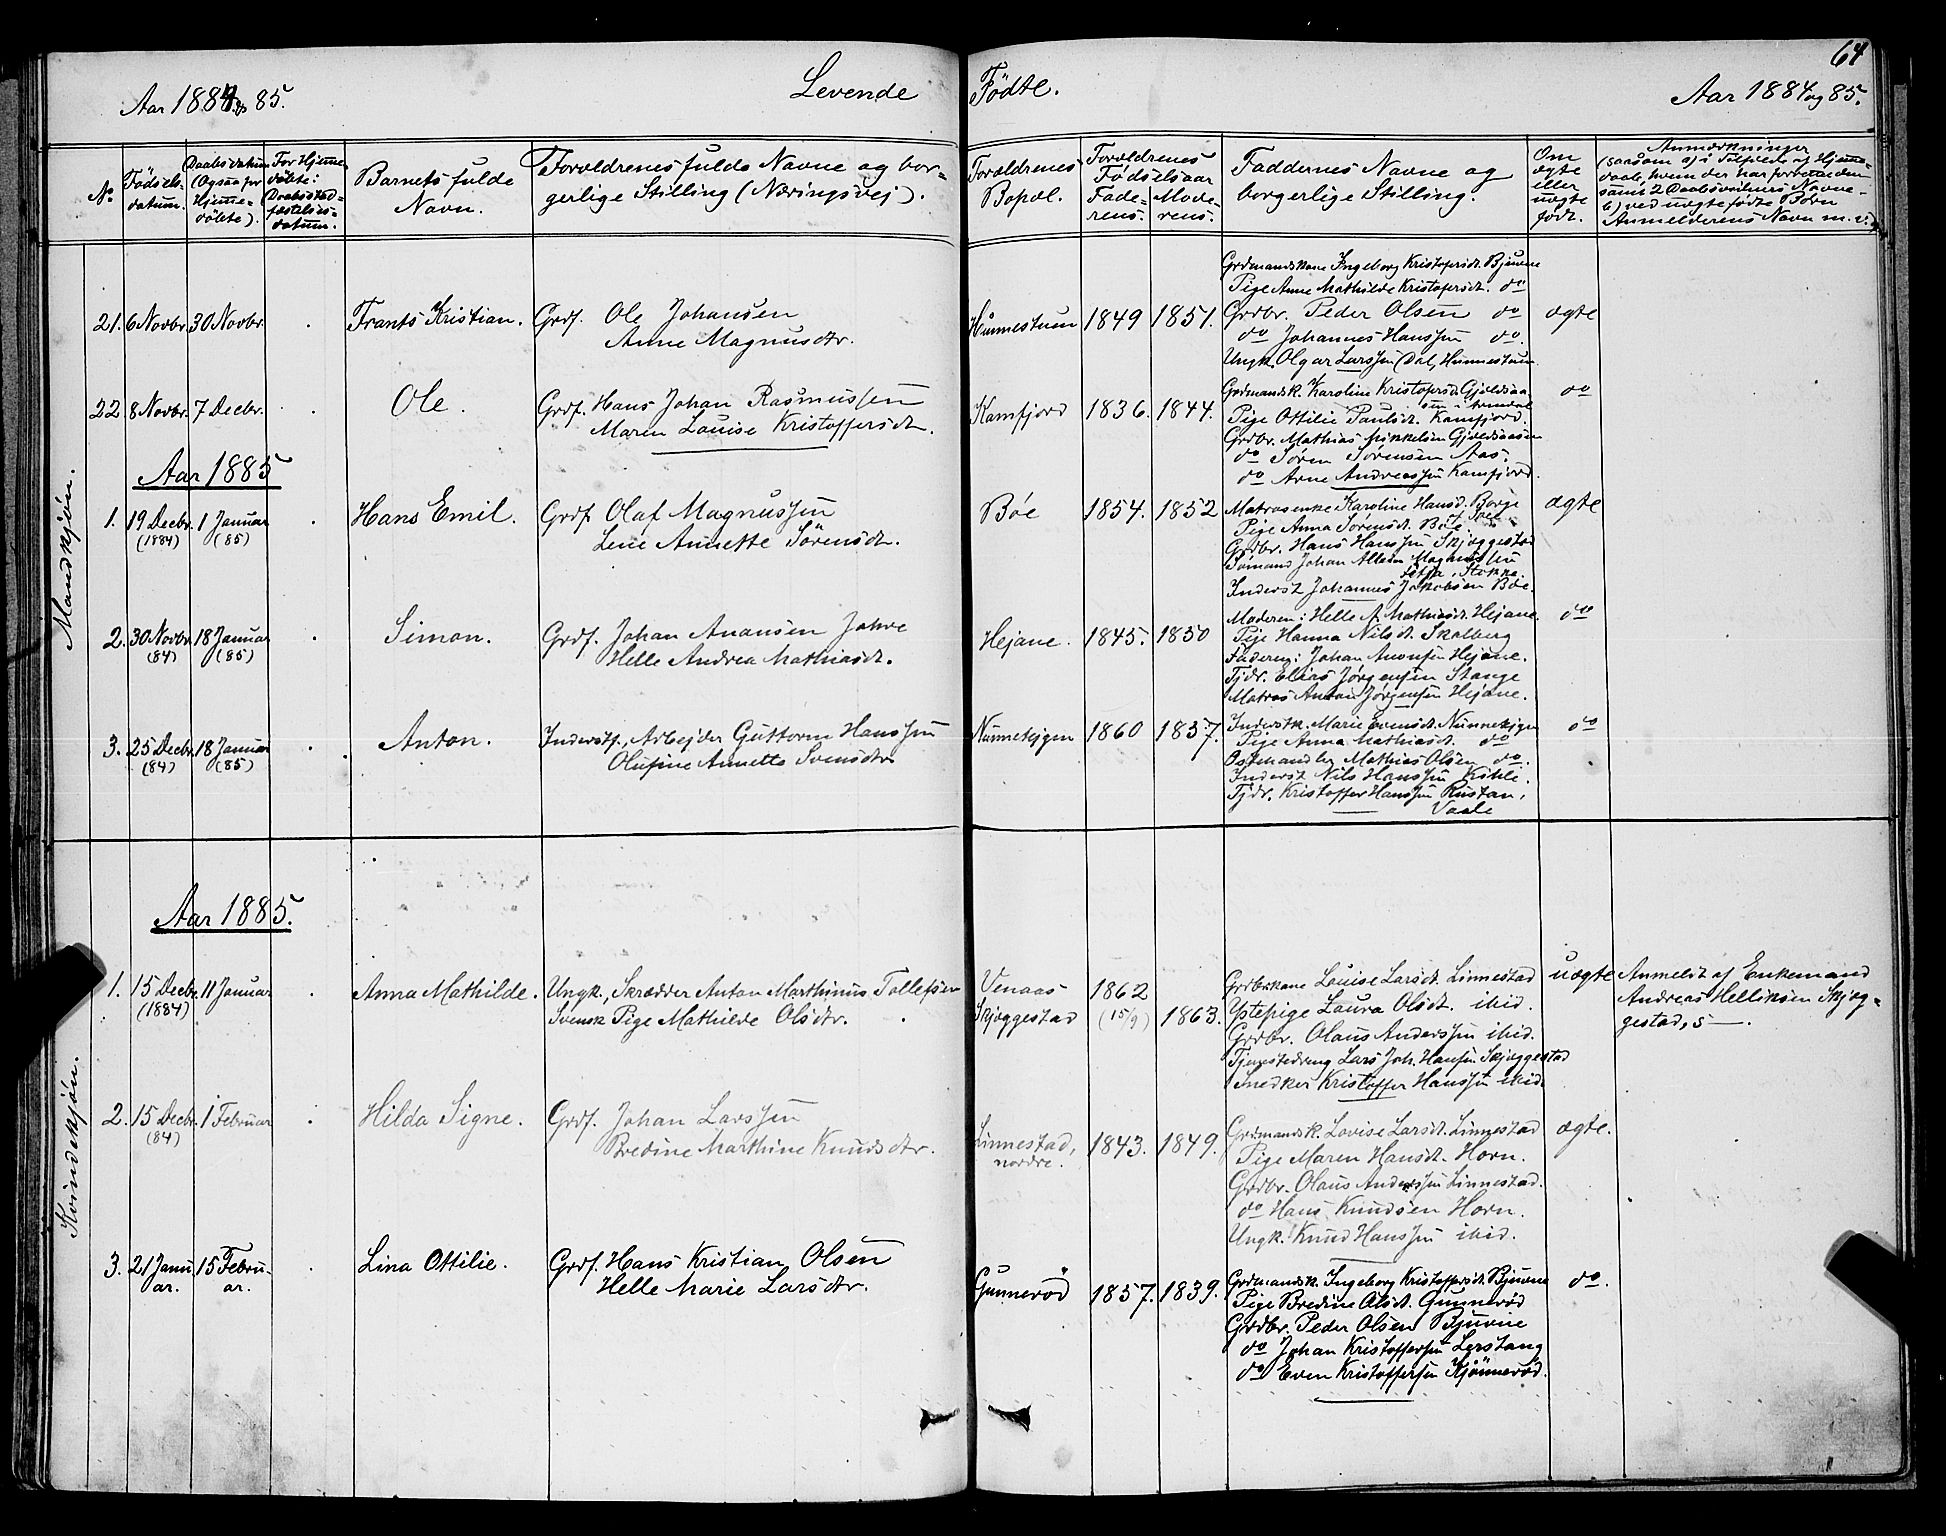 64
Aar 1884 og 85.
Levende
Fødte.
Aar 1884 og 85.
No
Fødsels-
datum.
Daabsdatum
(Ogsaa for
Hjemme-
döbte).
For Hjemme-
döbte:
Daabsstad-
fæstelses-
datum.
Barnets fulde
Navn.
Forældrenes fulde Navne og bor-
gerlige Stilling (Næringsvej).
Forældrenes
Bopæl.
Forældrenes
Födselsaar
Fade-
rens.
Mode-
rens.
Faddernes Navne og
borgerlige Stilling.
Om
ægte
eller
uægte
födt.
Anmærkninger
(saasom a) i Tilfælde af Hjemme-
daab, hvem der har forrettet den
samt 2 Daabsvidners Navne-
b) ved uægte födte Börn
Anmelderens Navn m. v.)
Mandkjön.
21. 6 Novbr. 30 Novbr. Frants Kristian. Grdf. Ole Johansen
Anne Magnusdtr.
Hunnestuen 1849 1851.
Grdmandskone Ingeborg Kristofersdt. Bjuene
Pige Anne Mathilde Kristofersdt. do
Grdbr. Peder Olsen do
do Johannes Hanssen do.
Ungk. Olgar Larssen (Dal, Hunnestuen
ægte
22 8 Novbr. 7 Decbr. Ole. Grdf. Hans Johan Rasmussen
Maren Louise Kristoffersdtr.
Kamfjord 1836. 1844.
Grdmandsk. Karoline Kristofersdt. Gjeldsaa
Pige Ottilie Paulsdt. Kamfjord.
Grdbr. Mathias Mikkelsen Gjeldsaasen
do Søren Sørensen Aas.
do Arne Andreassen Kamfjord.
do
Aar 1885
1. 19 Decbr. (1884) 1 Januar (85) Hans Emil. Grdf Olaf Magnussen
Lene Annette Sörensdt.
Bøe 1854. 1852
Matrosenke Karoline Hansd. Borge
Pige Anna Sørensdt. Bøe.
Grdbr. Hans Hanssen Skjæggestad
Sømand Johan Alletin Magnussen
Stokke.
Inderst Johannes Jakobsen Bøe.
ægte
2. 30 Novbr. (84) 18 Januar (85) Simon. Grdf. Johan Anonsen Jahre
Helle Andrea Mathiasdt.
Hejane. 1845. 1850
Moderen: Helle A. Mathiasdt. Hejane.
Pige Hanna Nilsdt. Skalberg
Faderen: Johan Anonsen Hejane.
Tjdr. Elias Jørgensen Stange
Matros Anton Jørgensen Hejane.
do
3. 25 Decbr. (84) 18 Januar (85) Anton. Inderstf., Arbejder Guttorm Hanssen
Olufine Annette Svensdtr.
Nunnekjgen 1860 1837.
Inderstk. Marie Evensdt. Nunnekjgen
Pige Anna Mathiasdt. do
Mathias Olsen do.
Inderst Nils Hanssen Kihle.
Tjdr. Kristoffer Hanssen Rustan,
Vaale
do
Kvindekjön.
Aar 1885.
1. 15 Decbr. (1884) 11 Januar Anna Mathilde. Ungk., Skrædder Anton Marthinus Tollefsen
Svensk Pige Mathilde Olsdtr.
Venaas
Skjæggestad
1862 (15/9) 1863.
Grdbrkone Louise Larsdt. Linnestad
Ystepige Laura Olsdt. ibid.
Grdbr. Olaus Anderssen ibid.
Tjenestedreng Lars Joh. Hansen Skjæggestad
Snedker Kristoffer Hanssen ibid.
uægte
Anmeldt af Enkemand
Andreas Helliksen Skjæg-
gestad, s—.
2. 15 Decbr. (84) 1 Februar Hilda Signe. Grdf. Johan Larssen
Bredine Marthine Knudsdtr.
Linnestad,
nordre.
1843. 1849.
Grdmandsk. Lovise Larsdt. Linnestad
Pige Maren Hansdt. Horn.
Grdbr. Olaus Anderssen Linnestad.
do Hans Knudsen Horn.
Ungk. Knud Hanssen ibid.
ægte.
3. 21 Janu
ar. 15 Febru-
ar. Lina Ottilie. Grdf. Hans Kristian Olsen
Helle Marie Larsdtr.
Gunnerød 1837. 1839.
Grdmandsk. Ingeborg Kristoffersdt. Bjuene
Pige Bredine Olsdt. Gunnerød
Grdbr. Peder Olsen Bjuene
do Johan Kristoffersen Lerstang
do Even Kristoffersen Kjønnerød.
do.